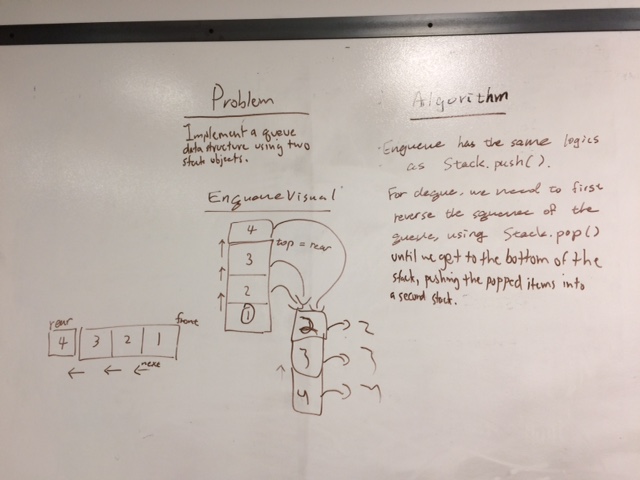 Problem
Implement a queue
data structure using two
stack objects.
Enqueue Visual
4
top = rear
3
2
1
2 → 2
3 → 3
4 → 4
rear
front
4 3 2 1
next
Algorithm
Enqueue has the same logics
as Stack.push().
For deque, we need to first
reverse the squence of the
queue, using Stack.pop()
until we get to the bottom of the
stack, pushing the popped items into
a second stack.